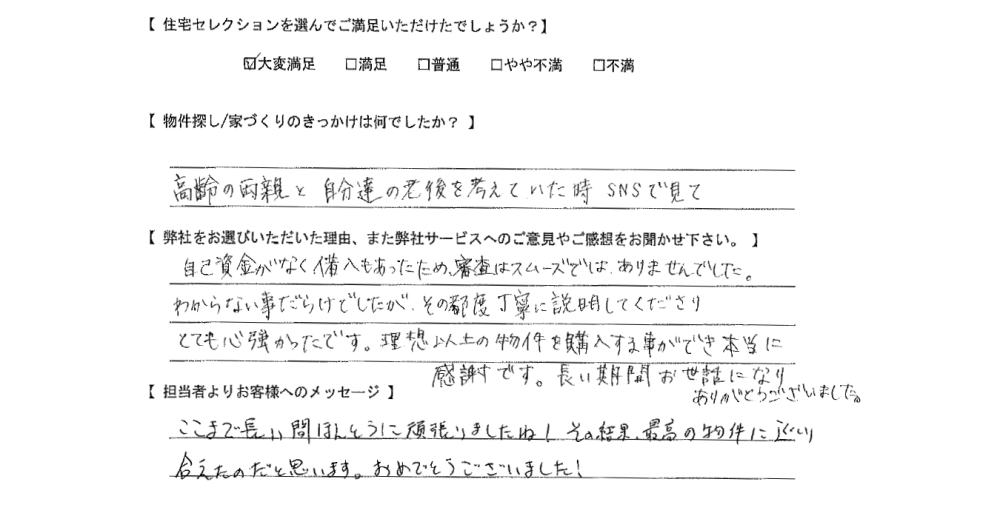 【 住宅セレクションを選んでご満足いただけたでしょうか？】
☑大変満足 □満足 □普通 □やや不満 □不満
【 物件探し/家づくりのきっかけは何でしたか？ 】
高齢の両親と 自分達の老後を考えていた時 SNSで見て
【 弊社をお選びいただいた理由、また弊社サービスへのご意見やご感想をお聞かせ下さい。 】
自己資金がなく借入もあったため、審査はスムーズではありませんでした。
わからない事だらけでしたが、その都度丁寧に説明してくださり
とても心強かったです。理想以上の物件を購入する事ができ本当に
感謝です。長い期間お世話になり
ありがとうございました。
【 担当者よりお客様へのメッセージ 】
ここまで長い間ほんとうに頑張りましたね！ その結果、最高の物件に巡り
合えたのだと思います。おめでとうございました！